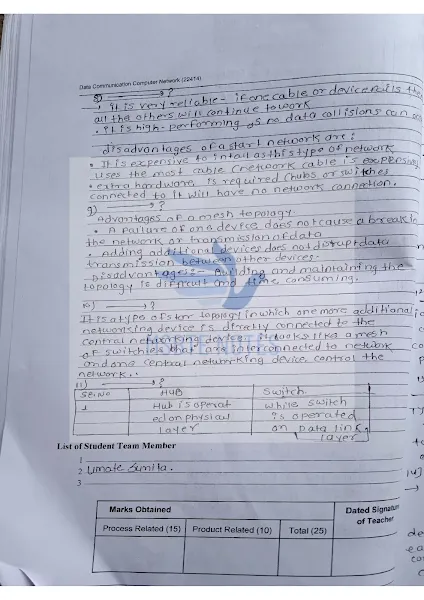 Data Communication Computer Network (22414)
8) ⟶ ?
it is very reliable - if one cable or device fails the
all the others will continue to work
• it is high-performing as no data collisions can occ
disadvantages of a start network are:
• It is expensive to intall as this type of network
uses the most cable (network cable is expensive
• extra hardware is required (hubs or switches
connected to it will have no network connection.
9) ⟶ ?
Advantages of a mesh topology
• A failure of one device does not cause a break in
the network or transmission of data
• Adding additional devices does not disrupt data
transmission between other devices.
Disadvantages :- Building and maintaining the
topology is difficult and time consuming.
10) ⟶ ?
It is a type of star topology in which one more additional
networking device is directly connected to the
central networking device. It looks like a mesh
of switches that are interconnected to network
and one central networking device control the
network..
11) ⟶ ?
SR.NO HUB Switch.
1 Hub is operat while switch
ed on physical is operated
Layer on Data link
Layer
List of Student Team Member
1
2 Umate Sumita.
3
Marks Obtained Dated Signature
of Teacher
Process Related (15) Product Related (10) Total (25)